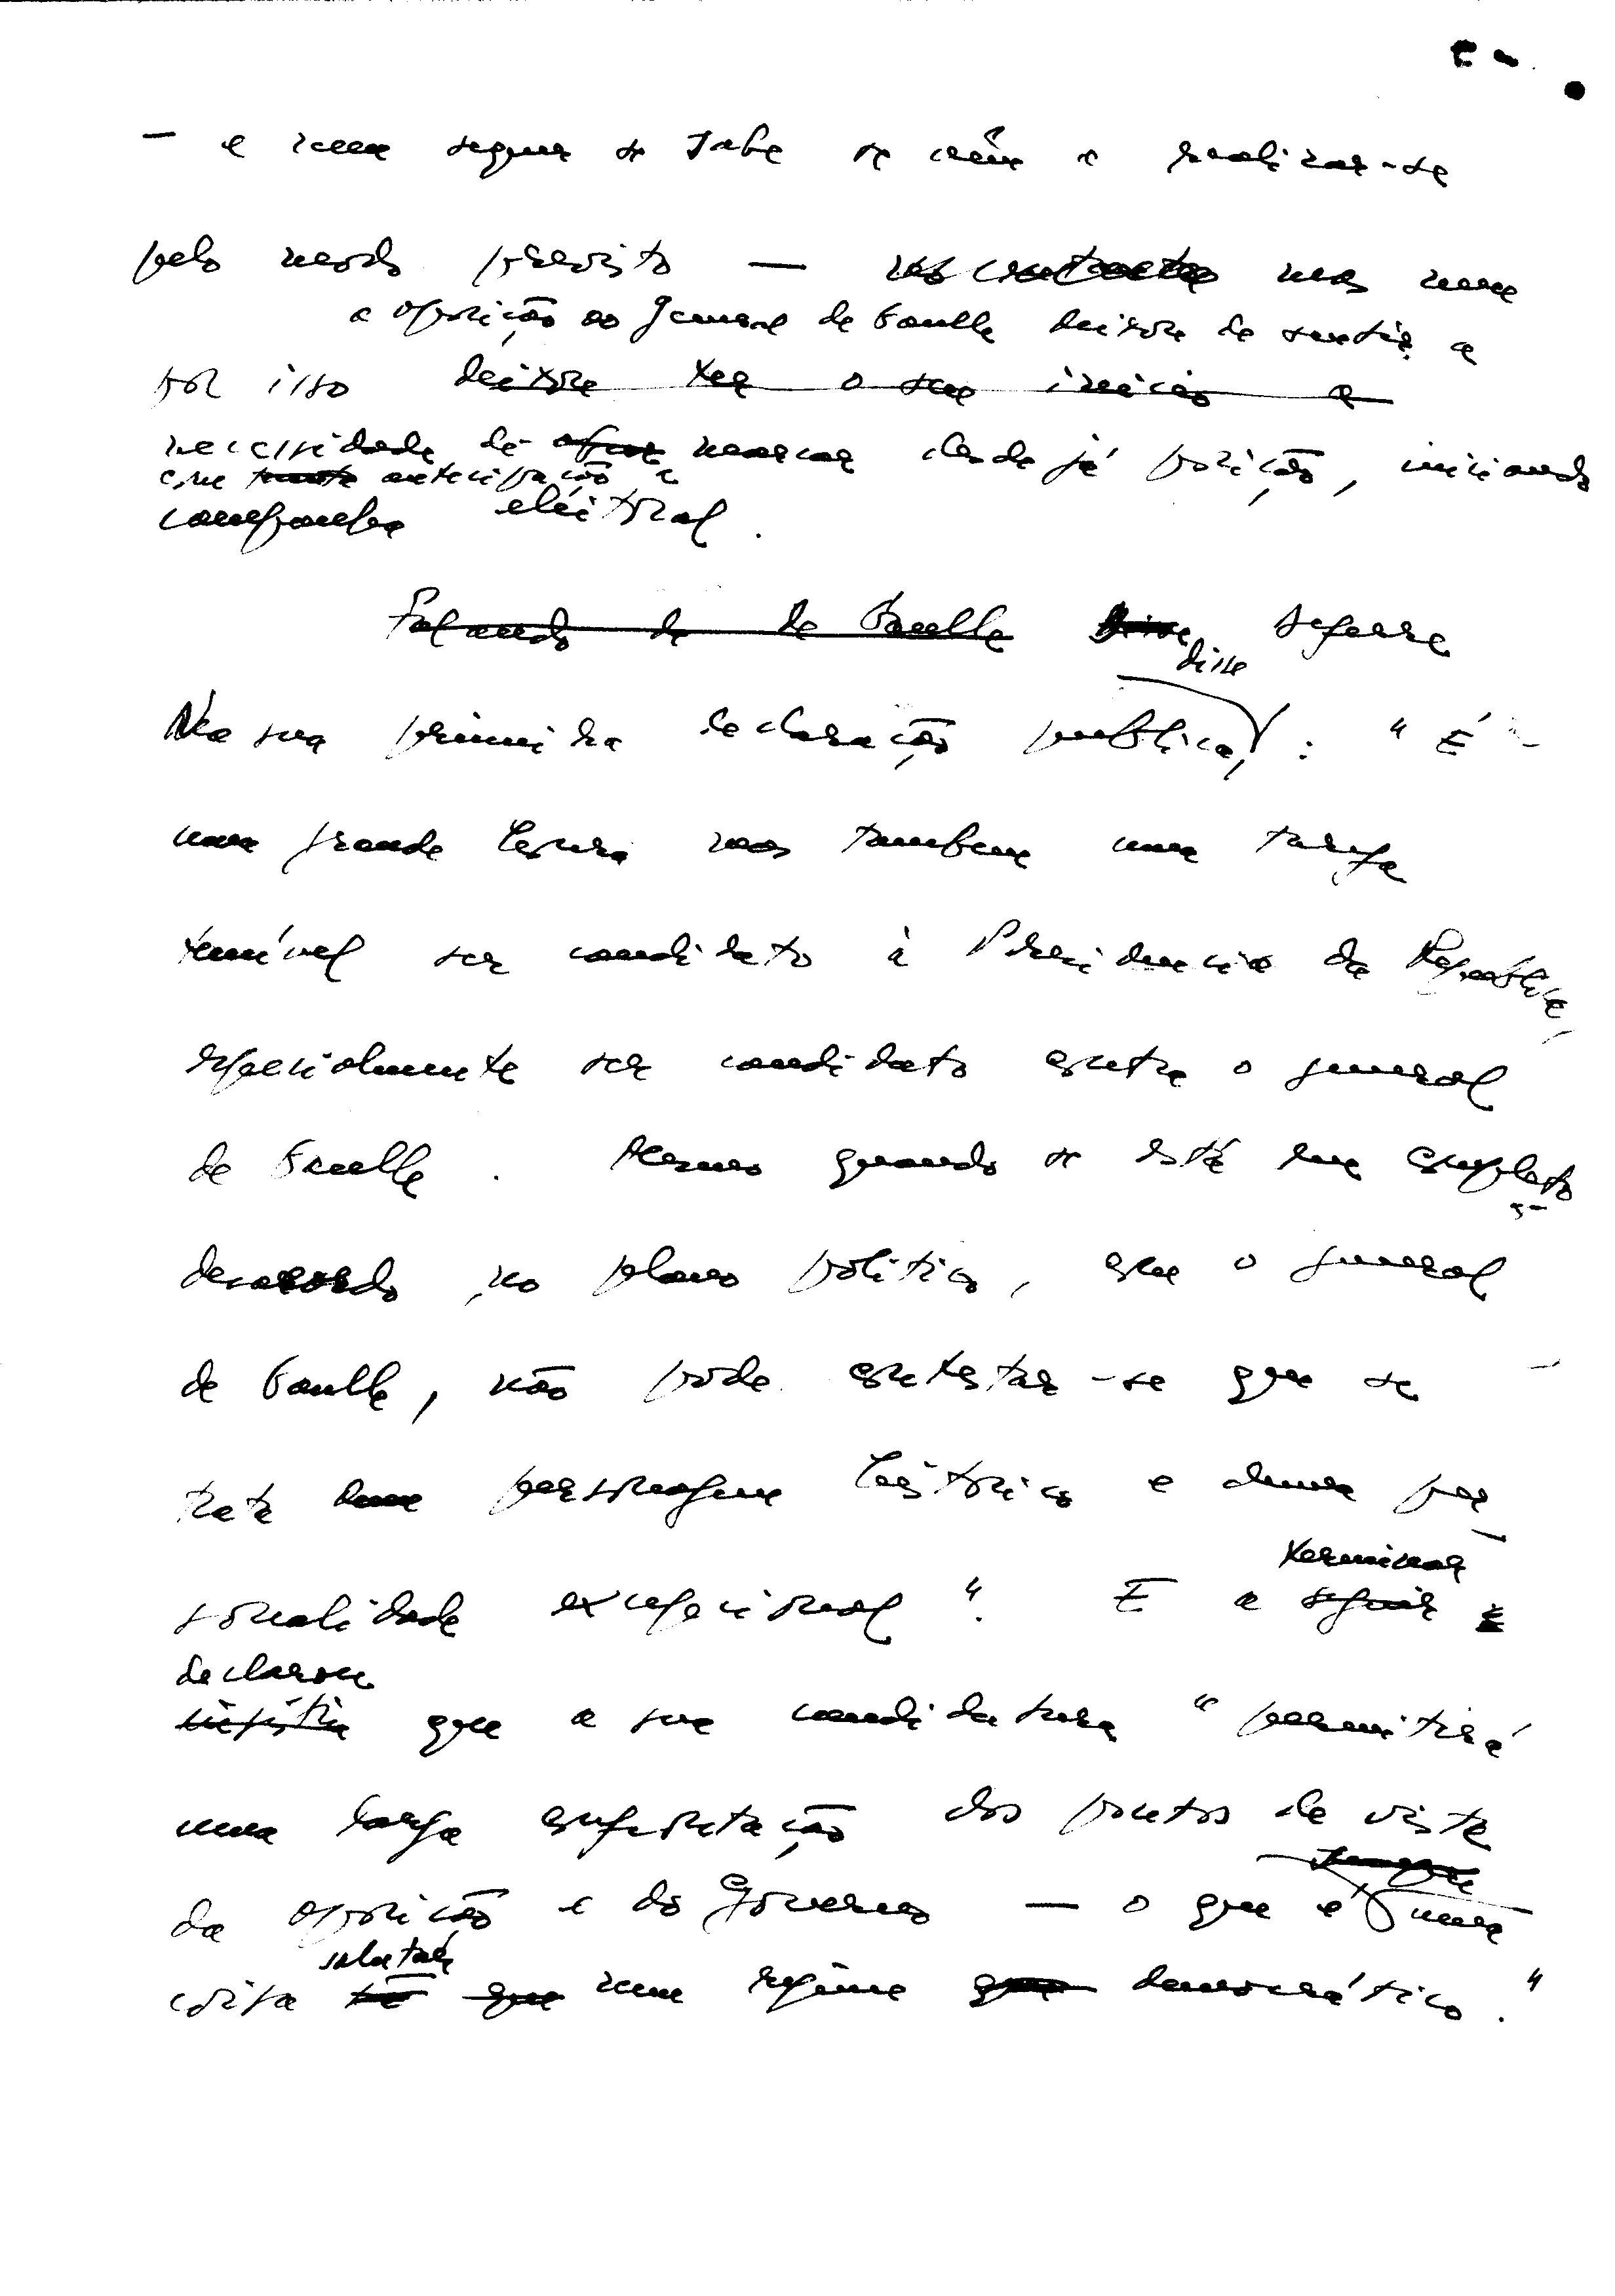 — e nem sequer se sabe se virá a realizar-se
pelo modo previsto — no entanto mas nem
a oposição ao General de Gaulle deixou de sentir a
por isso deixou ter o seu início a
necessidade de marcar desde já posição, iniciando
com muita antecipação a
campanha eleitoral.
Falando de de Gaulle disse Deferre
disse
Na sua primeira declaração publica, : "É
uma grande honra mas tambem uma tarefa
temível ser candidato à Presidencia da Republica,
especialmente ser candidato contra o general
de Gaulle. Mesmo quando se está em completo
desacordo, no plano politico, com o general
de Gaulle, não pode contestar-se que se
trata dum personagem histórico e duma per-
sonalidade excepcional". E a seguir
terminar
declarou
insistiu que a sua candidatura "permitirá
uma larga confrontação dos pontos de vista
da oposição e do Governo — o que é sempre uma
salutar
coisa tão que num regime que democrático."